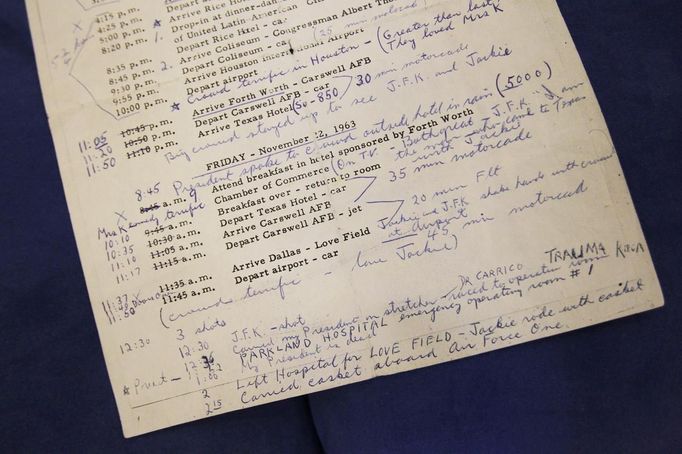 4:15 p.m. Arrive Rice Ho
4:25 p.m. Drop-in at dinner-dan
5:00 p.m. of United Latin-American Ci
8:20 p.m. Depart Rice Hotel - car
8:35 p.m. Arrive Coliseum - Congressman Albert Th
8:45 p.m. Depart Coliseum - car (25 min motorcad
9:30 p.m. Arrive Houston International Airport
9:55 p.m. Depart airport
Crowd terrific in Houston - (Greater than last
They loved Mrs K
10:00 p.m. Arrive Forth Worth - Carswell AFB
11:05 10:45 p.m. Depart Carswell AFB - car 30 min motorcade
11:20 10:50 p.m. Arrive Texas Hotel (50-850)
11:50 11:10 p.m.
Big crowd stayed up to see J.F.K. and Jackie
FRIDAY - November 22, 1963
President spoke to crowd outside hotel in rain (5000)
8:45 8:45 a.m. Attend breakfast in hotel sponsored by Forth Worth
Chamber of Commerce (On TV - Both great J.F.K. "I am
the man who came to Texas
with Jackie
Mrs Kennedy terrific
X 9 a.m. Breakfast over - return to room
10:10 9:45 a.m. Depart Texas Hotel - car 35 min motorcade
10:35 10:30 a.m. Arrive Carswell AFB
11:10 11:05 a.m. Depart Carswell AFB - jet 20 min Flt
11:17 11:15 a.m.
Jackie and J.F.K. shake hands with crowd
at airport
11:37 11:35 a.m. Arrive Dallas - Love Field
11:50 11:45 a.m. Depart airport - car 45 min motorcad
(crowds terrific - love Jackie)
3 shots
12:30 12:30 J.F.K. - shot
12:36 Carried my President on stretcher - raced to operation room
DR CARRICO TRAUMA ROOM
PARKLAND HOSPITAL emergency operating room #1
1:00 My President is dead
2 Left Hospital for LOVE FIELD - Jackie rode with casket
2 15 Carried casket aboard Air Force One.